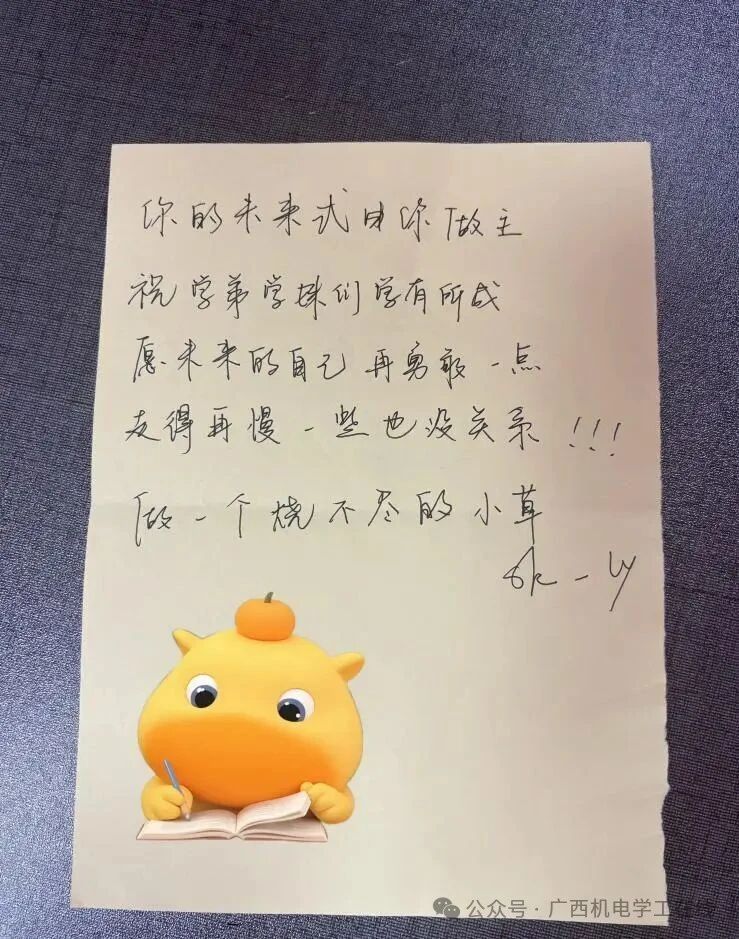 你的未来式由你做主
祝学弟学妹们学有所成
愿未来的自己再勇敢一点
友得再慢一些也没关系!!!
做一个烧不尽的小草
公众号·广西机电学工在线